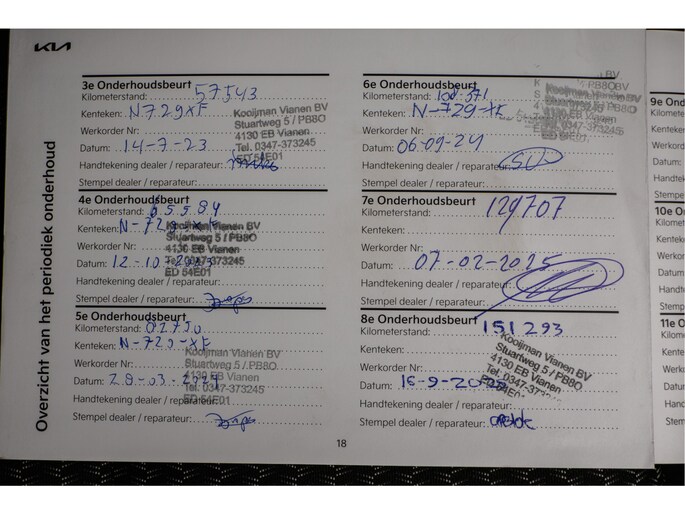 KIA
Overzicht van het periodiek onderhoud
3e Onderhoudsbeurt
Kilometerstand: 57543
Kenteken: N729XF
Werkorder Nr:
Datum: 14-7-23
Handtekening dealer / reparateur:
Stempel dealer / reparateur:
Kooijman Vianen BV
Stuartweg 5 / PB8O
4130 EB Vianen
Tel. 0347-373245
ED 54E01
4e Onderhoudsbeurt
Kilometerstand: 65584
Kenteken: N-729-XF
Werkorder Nr:
Datum: 12-10-2023
Handtekening dealer / reparateur:
Stempel dealer / reparateur:
Kooijman Vianen BV
Stuartweg 5 / PB8O
4130 EB Vianen
Tel. 0347-373245
ED 54E01
5e Onderhoudsbeurt
Kilometerstand:
Kenteken: N-729-XF
Werkorder Nr:
Datum:
Handtekening dealer / reparateur:
Stempel dealer / reparateur:
Kooijman Vianen BV
Stuartweg 5 / PB8O
4130 EB Vianen
Tel. 0347-373245
ED 54E01
18
6e Onderhoudsbeurt
Kilometerstand:
Kenteken: N-729-XF
Werkorder Nr:
Datum: 06-09-24
Handtekening dealer / reparateur:
Stempel dealer / reparateur:
7e Onderhoudsbeurt
Kilometerstand: 129707
Kenteken:
Werkorder Nr:
Datum: 07-02-2025
Handtekening dealer / reparateur:
Stempel dealer / reparateur:
8e Onderhoudsbeurt
Kilometerstand: 151293
Kenteken:
Werkorder Nr:
Datum: 16-9-2025
Handtekening dealer / reparateur:
Stempel dealer / reparateur:
Kooijman Vianen BV
Stuartweg 5 / PB8O
4130 EB Vianen
Tel. 0347-373245
ED 54E01
9e On
Kilomet
Kente
Werko
Datum
Handt
Stem
10e O
Kilom
Kent
Werk
Datu
Han
Ste
11e
Kilo
Ken
We
Dat
Ha
Stem